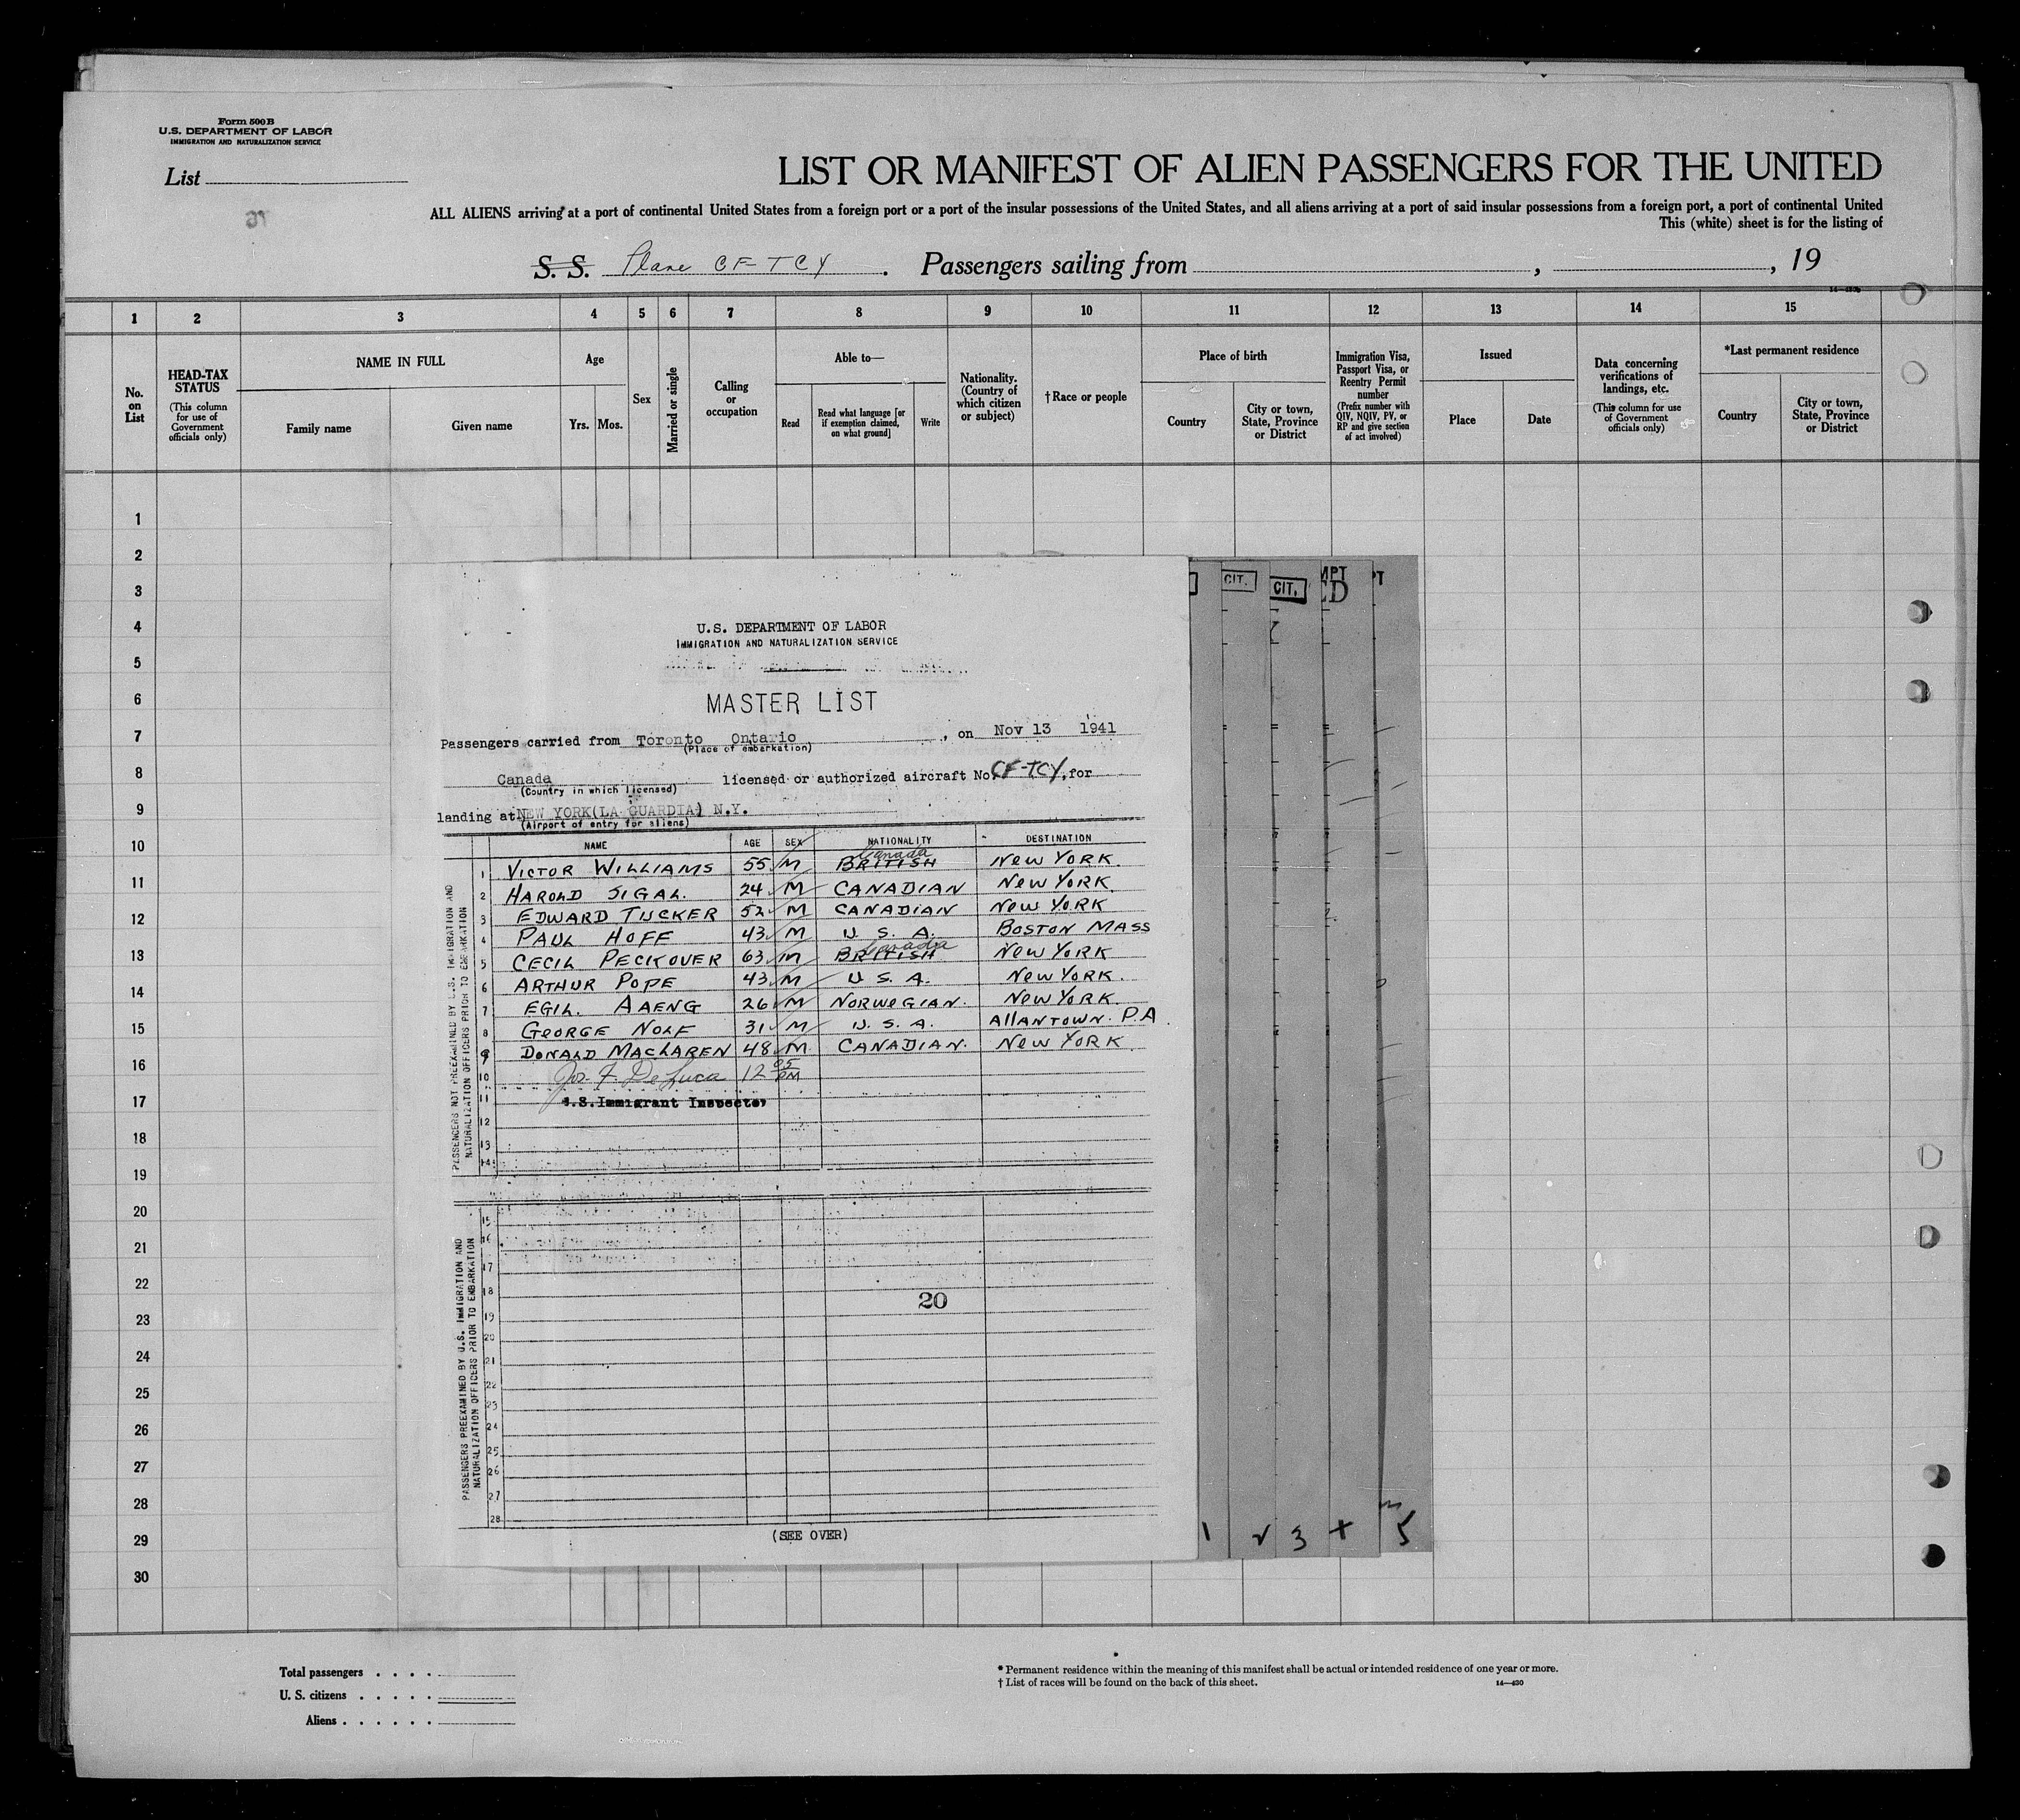 Form 500 B
U.S. DEPARTMENT OF LABOR
IMMIGRATION AND NATURALIZATION SERVICE
List
LIST OR MANIFEST OF ALIEN PASSENGERS FOR THE UNITED
ALL ALIENS arriving at a port of continental United States from a foreign port or a port of the insular possessions of the United States, and all aliens arriving at a port of said insular possessions from a foreign port, a port of continental United
This (white) sheet is for the listing of
S. S. Plane CF-TCY. Passengers sailing from , , 19
1 2 3 4 5 6 7 8 9 10 11 12 13 14 15
No. on List
HEAD-TAX STATUS
(This column for use of Government officials only)
NAME IN FULL
Family name
Given name
Age
Yrs. Mos.
Sex
Married or single
Calling or occupation
Able to—
Read
Read what language [or if exemption claimed, on what ground]
Write
Nationality. (Country of which citizen or subject)
†Race or people
Place of birth
Country
City or town, State, Province or District
Immigration Visa, Passport Visa, or Reentry Permit number
(Prefix number with QIV, NQIV, PV, or RP and give section of act involved)
Issued
Place
Date
Data concerning verifications of landings, etc.
(This column for use of Government officials only)
*Last permanent residence
Country
City or town, State, Province or District
1
2
3
4
5
6
7
8
9
10
11
12
13
14
15
16
17
18
19
20
21
22
23
24
25
26
27
28
29
30
CIT.
CIT.
U.S. DEPARTMENT OF LABOR
IMMIGRATION AND NATURALIZATION SERVICE
MASTER LIST
Passengers carried from Toronto Ontario , on Nov 13 1941
(Place of embarkation)
Canada licensed or authorized aircraft No. CF-TCY, for
(Country in which licensed)
landing at NEW YORK(LA GUARDIA) N.Y.
(Airport of entry for aliens)
NAME AGE SEX NATIONALITY DESTINATION
Canada
1 VICTOR WILLIAMS 55 M BRITISH NEW YORK.
2 HAROLD SIGAL. 24 M CANADIAN NEW YORK.
3 EDWARD TUCKER 52 M CANADIAN NEW YORK
4 PAUL HOFF 43 M U. S. A. BOSTON MASS
Canada
5 CECIL PECKOVER 63 M BRITISH NEW YORK
6 ARTHUR POPE 43 M U S. A. NEW YORK.
7 EGIL. AAENG 26 M NORWEGIAN. NEW YORK.
8 GEORGE NOLF 31 M U. S. A. ALLANTOWN. P.A.
9 DONALD MACLAREN 48 M CANADIAN. NEW YORK.
10 Jos. F. De Luca 12 05 PM
11 U.S. Immigrant Inspector
12
13
14
PASSENGERS NOT PREEXAMINED BY U.S. IMMIGRATION AND NATURALIZATION OFFICERS PRIOR TO EMBARKATION
15
16
17
18
20
19
20
21
22
23
24
25
26
27
28
PASSENGERS PREEXAMINED BY U.S. IMMIGRATION AND NATURALIZATION OFFICERS PRIOR TO EMBARKATION
(SEE OVER)
1 2 3 4 5
Total passengers . . . .
U. S. citizens . . . . .
Aliens . . . . . .
* Permanent residence within the meaning of this manifest shall be actual or intended residence of one year or more.
† List of races will be found on the back of this sheet.
14—430